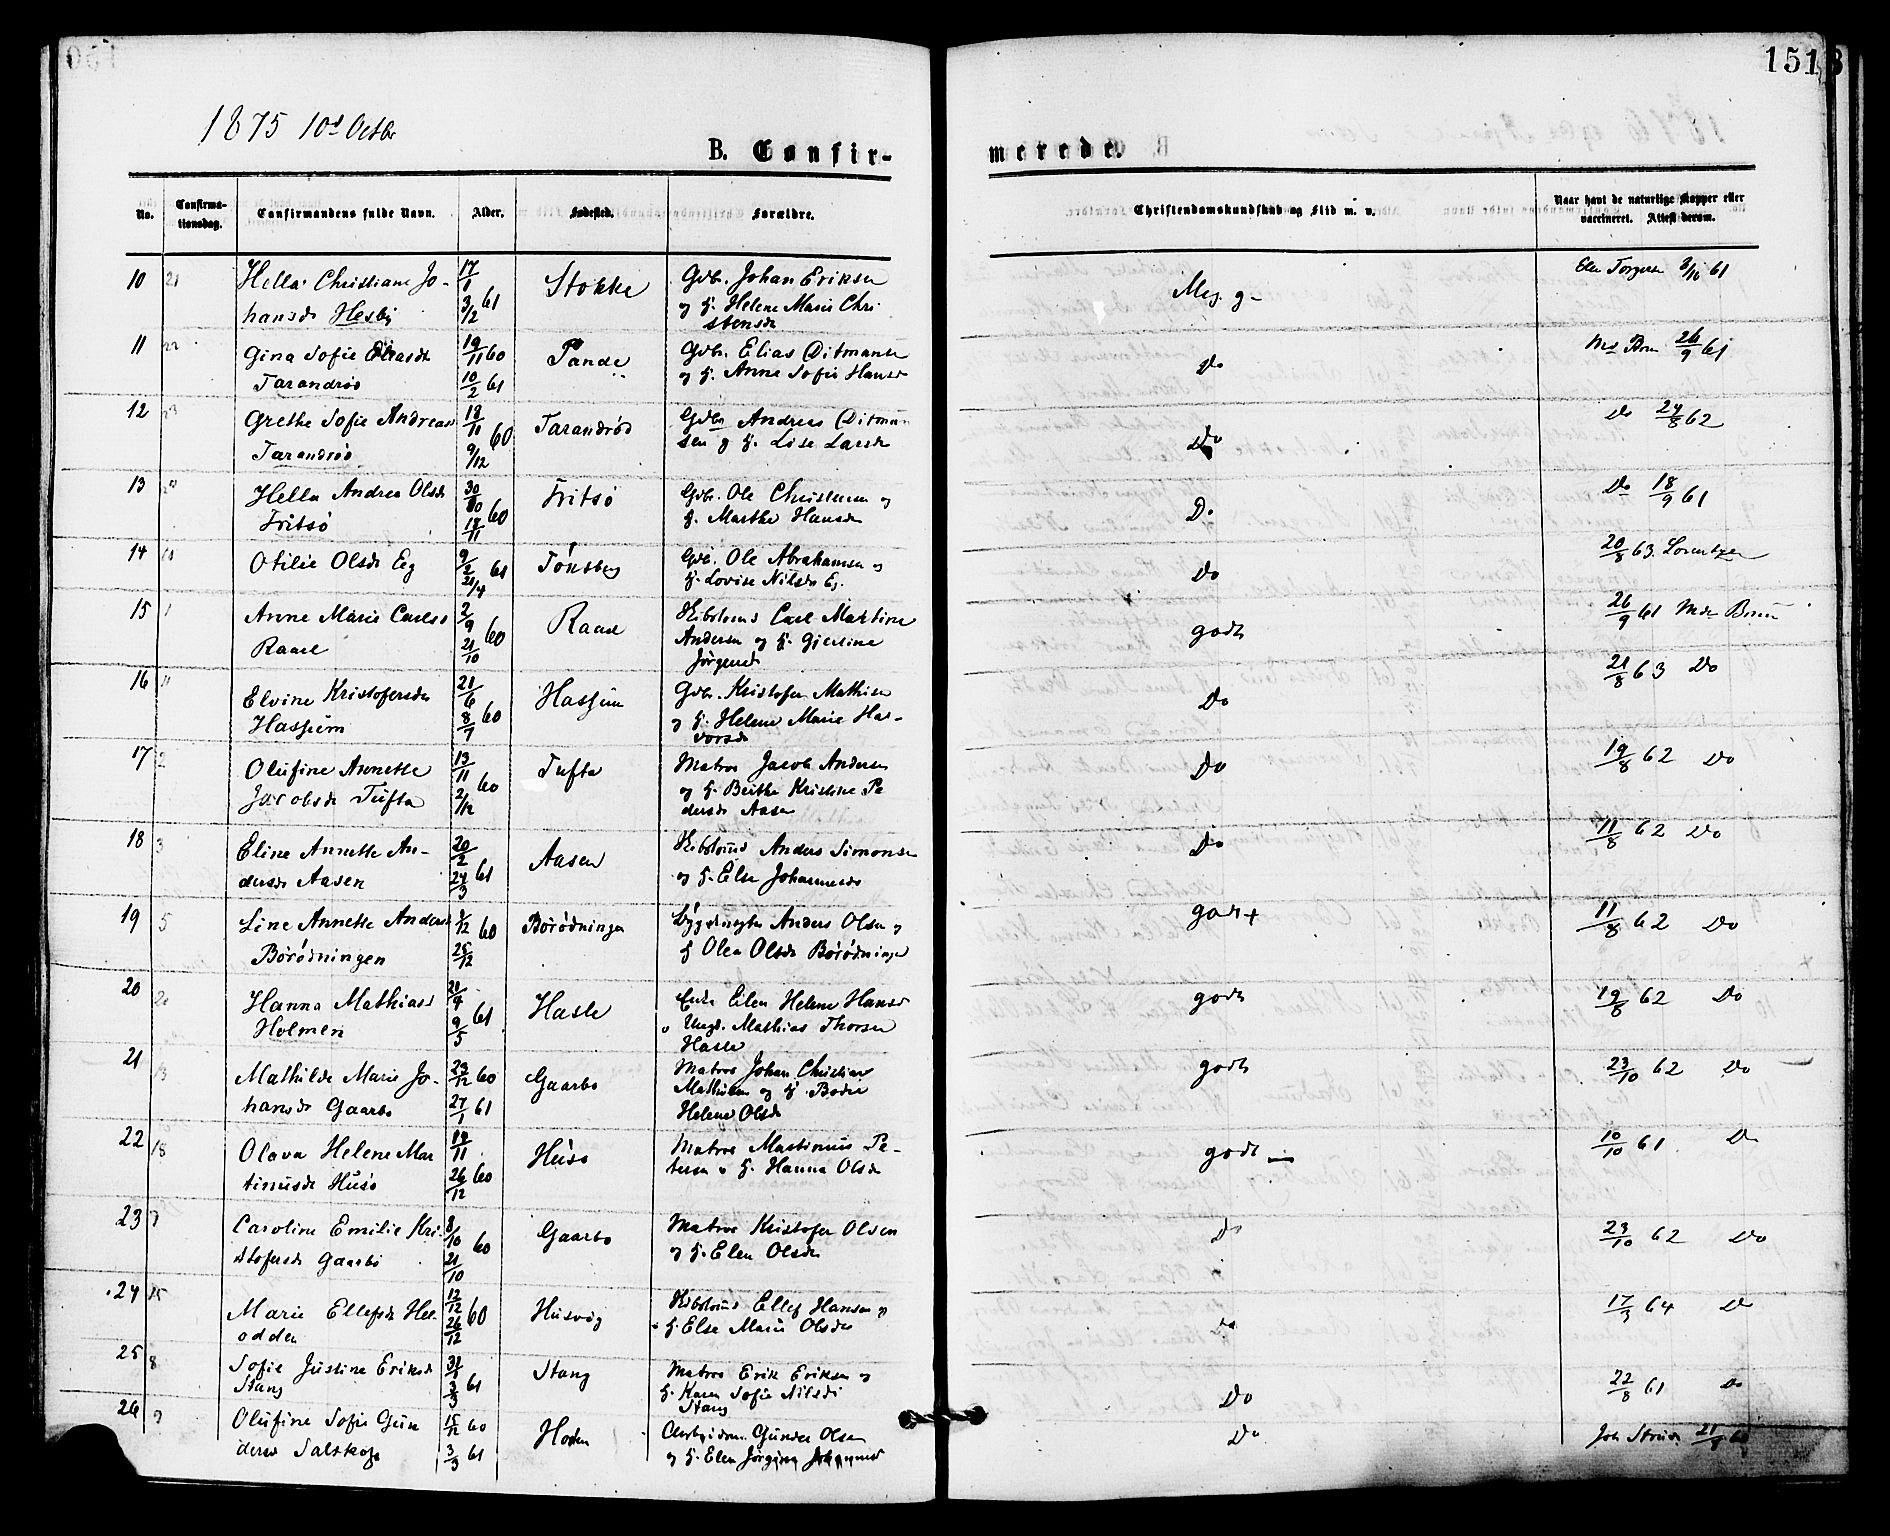 151
1875 10d Octbr
B. Confir-
merede.
No.
Confirma-
tionsdag.
Confirmandens fulde Navn.
Alder.
Fødested.
Forældre.
Christendomskundskab og Flid m. v.
Naar havt de naturlige Kopper eller
vaccineret. Attest derom.
10 21 Hella Christiane Jo- 17/1 Stokke Gdb. Johan Eriksen Meg. g- 61
hansdr Hesby 3/2 61 og H. Helene Marie Chri
stensdr
11 22 Gina Sofie Eliasdr 19/11 60 Tande Gdb. Elias Ditmansen Do 26/9 61
Tarandrød 10/2 61 og H. Anne Sofie Hansd
12 23 Grethe Sofie Andreasd 18/11 60 Tarandrød Gdb Andreas Ditman Do Do 24/8 62
Tarandrød 9/12 sen og H. Lise Larsdr
13 Hella Andrea Olsdr 30/10 60 Fritsø Gdb. Ole Christensen og Do Do 18/9 61
Fritsø 18/11 H. Marthe Hansdr
14 Otilie Olsdr Eeg 9/2 61 Tønsberg Gdb. Ole Abrahamsen og Do 20/8 63. Lorentzen
21/4 H. Lovise Nilsdr Eg.
15 1 Anne Marie Carlsd 2/9 60 Raael Carl Martin godt 26/9 61
Raael 21/10 Andersen og H. Gjertine
Jørgensd
16 Elvine Kristofersdr 21/6 60 Hassum Gdb. Kristofer Mathisen Do 21/8 63 Do
Hassum 8/7 og H. Helene Marie Hal-
vorsdr
17 2 Olufine Annette 13/11 60 Tufte Matros Jacob Andersen Do 19/8 62 Do
Jacobsdr Tufte 2/12 og H. Berthe Kristine Pe
dersdr Aasen
18 3 Eline Annette An- 20/2 61 Aasen Anders Simonsen Do 11/8 62 Do
dersdr Aasen 24/3 og H. Else Johannesdr
19 5 Line Annette Andersd 60 Børødningen Anders Olsen og godt 11/8 62 Do
Børødningen 25/12 H Olea Olsdr Børødningen
20 20 Hanna Mathiasd 61 Hasle Enke Elen Helene Hansd godt 19/8 62 Do
Holmen 9/5 Ungk. Mathias Thorsen
Hasle
21 13 Mathilde Marie Jo- 29/12 60 Gaarbo Matros Johan Christian godt 23/10 62 Do
hansdr Gaarbo 27/1 61 Mathisen og H. Bodil
Helene Olsdr
22 18 Olava Helene Mar 19/11 60 Husø Matros Martinius Pe- godt 10/10 61 Do
tinusdr Husø 26/12 tersen o H. Hanna Olsdr
23 7 Caroline Emilie Kri 8/10 60 Gaarbo Matros Kristofer Olsen Do 23/10 62 Do
stofersdr Gaarbo 21/10 og H. Elen Olsdr
24 15 Marie Ellefsdr Hel- 12/12 60 Husvig Ellef Hansen og Do 17/3 64 Do
odden 26/12 H. Else Marie Olsdr
25 8 Sofie Justine Eriksdr 31/1 61 Stang Matros Erik Eriksen og Do 22/8 61 Do
Stang 3/3 H. Karen Sofie Nilsdr
Stang
26 9 Olufine Sofie Gun 15/12 60 Holten Arbeidsm. Gunder Olsen Do
dersd Saltkop 3/3 61 og H. Elen Jørgine Johannesd